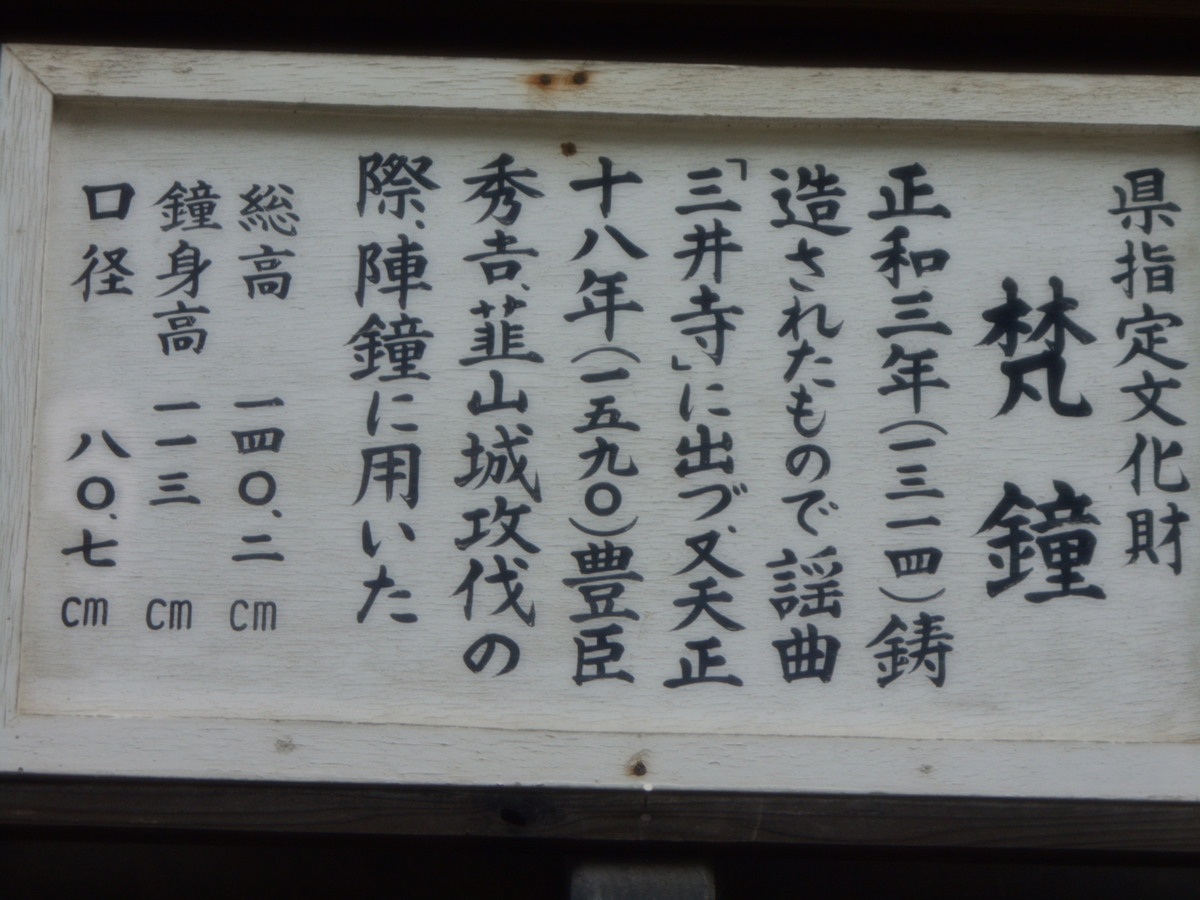 県指定文化財
梵鐘
正和三年(一三一四)鋳
造されたもので謡曲
「三井寺」に出づ、又天正
十八年(一五九〇)豊臣
秀吉、韮山城攻伐の
際、陣鐘に用いた
総高 一四〇、二cm
鐘身高 一一三cm
口径 八〇、七cm